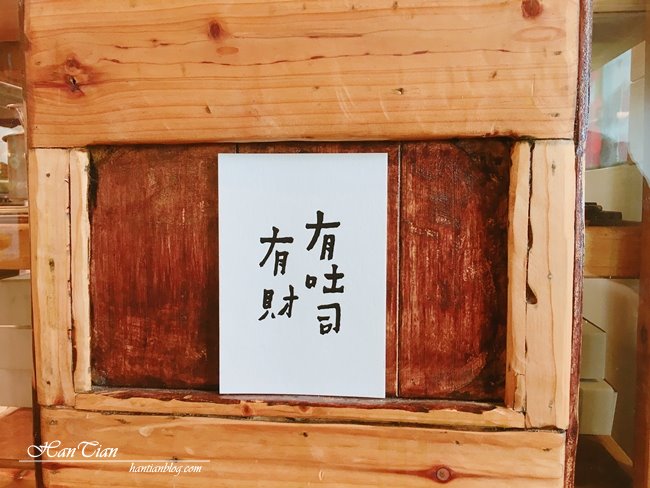 有吐司
有財
HanTian
hantianblog.com